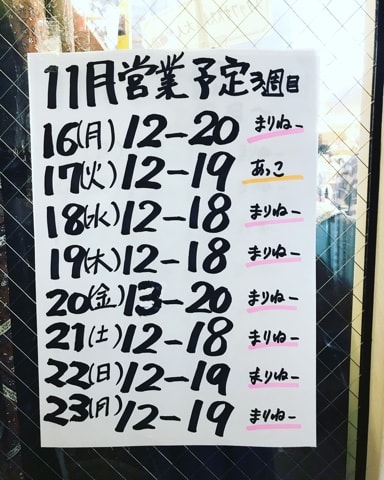 11月営業予定3週目
16(月) 12-20 まりねー
17(火) 12-19 あっこ
18(水) 12-18 まりねー
19(木) 12-18 まりねー
20(金) 13-20 まりねー
21(土) 12-18 まりねー
22(日) 12-19 まりねー
23(月) 12-19 まりねー